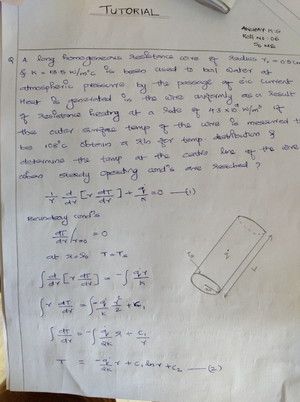 TUTORIAL
Roll no: 06
S6 ME
Q. A long homogeneous resistance wire of radius r₀ = 0.5 cm
& K = 13.5 W/m°C is been used to boil water at
atmospheric pressure by the passage of electric current
Heat is generated in the wire uniformly as a result
of resistance heating at a rate of 4.3 × 10⁷ W/m³ if
the outer surface temp of the wire is measured to
be 108°C obtain a for temp distribution &
determine the temp at the center line of the wire
when steady operating cond's are reached ?
1/r d/dr [r dT/dr] + q̇/k = 0 — (1)
Boundary cond's
dT/dr /r=0 = 0
at r=r₀ T=Ts
∫ d/dr [r dT/dr] = -∫ q̇r/k
∫ r dT/dr = ∫ -q̇/k r²/2 + C₁
∫ dT/dr = -∫ q̇/2k r + C₁/r
T = -q̇/2k r + C₁ ln r + C₂ — (2)
q̇
L
r₀